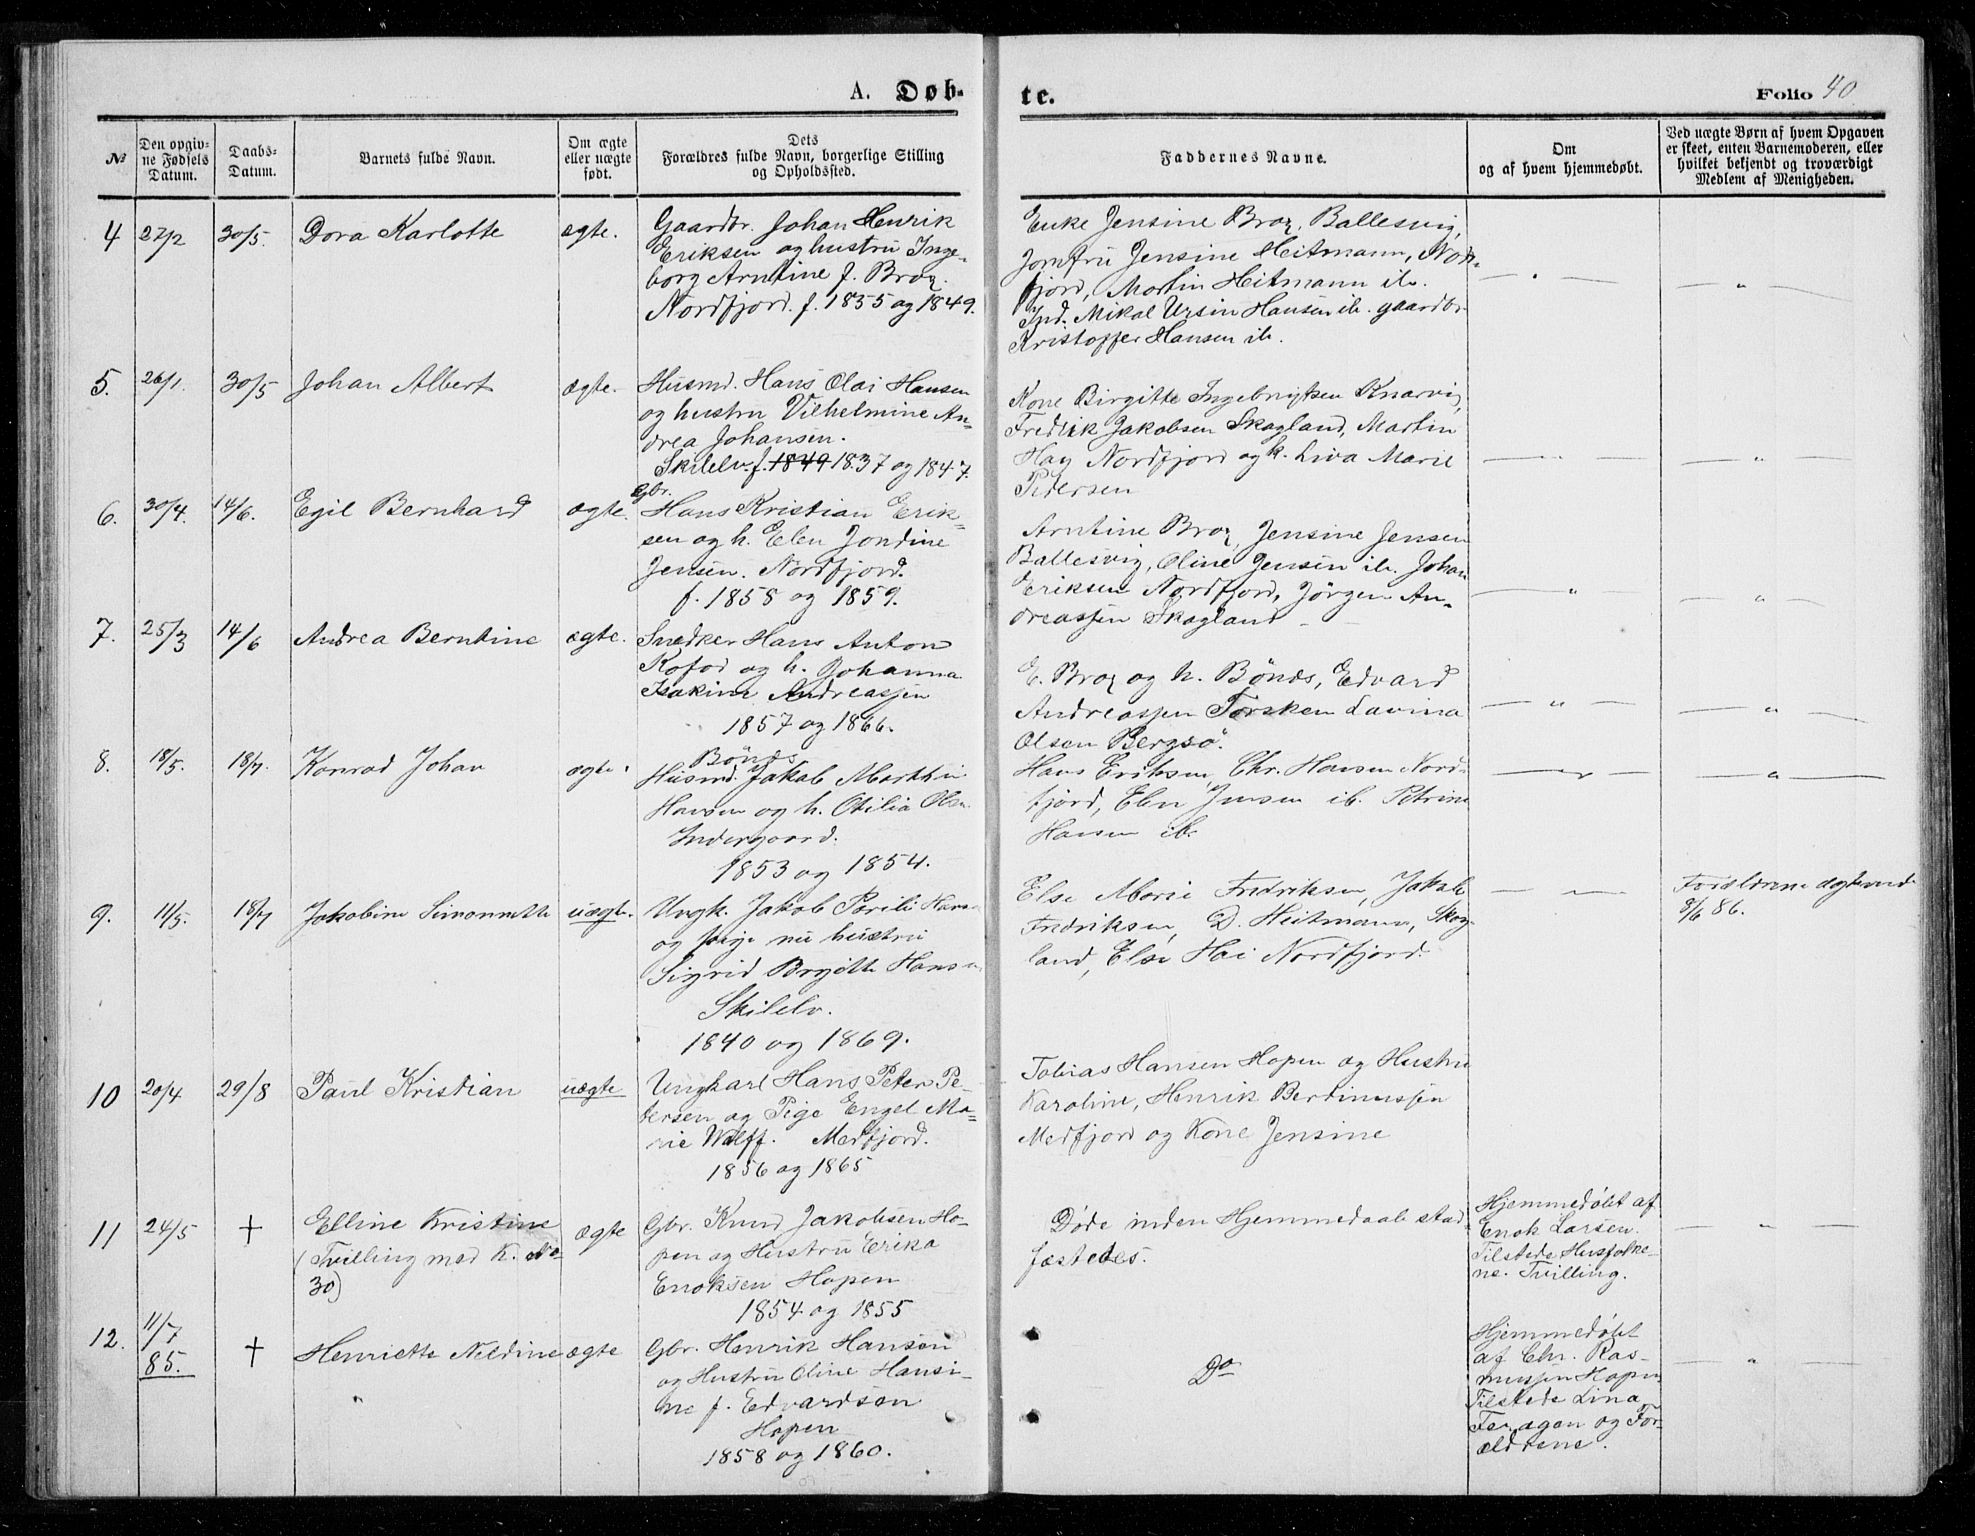 A. Døb-
te.
Folio 40
№
Den opgiv-
ne Fødsels
Datum.
Daabs-
Datum.
Barnets fulde Navn.
Om ægte
eller uægte
født.
Dets
Forældres fulde Navn, borgerlige Stilling
og Opholdssted.
Faddernes Navne.
Om
og af hvem hjemmedøbt.
Ved uægte Børn af hvem Opgaven
er skeet, enten Barnemoderen, eller
hvilket bekjendt og troværdigt
Medlem af Menigheden.
4
27/2
30/5.
Dora Karlotte
ægte.
Gaardbr. Johan Henrik
Eriksen og hustru Inge-
borg Arntine f. Brox.
Nordfjord. f. 1855 og 1849.
Enke Jensine Brox, Ballesvig,
Jomfru Jensine Heitmann, Nord-
fjord, Martin Heitmann ib.
Ind. Mikal Ursin Hansen ib. gaardbr.
Kristoffer Hansen ib.
— " —
— " —
5.
26/1.
30/5
Johan Albert
ægte.
Husmd. Hans Olai Hansen
og hustru Vilhelmine An-
drea Johansen.
Skilelv. f. 1849 1837 og 1847.
Kone Birgitte Ingebrigtsen Knarvig,
Fredrik Jakobsen Skogland, Martin
Hay Nordfjord og k. Liva Marie
Pedersen
— " —
— " —
6.
30/4.
14/6.
Egil Bernhard
ægte.
Gbr.
Hans Kristian Erik-
sen og h. Elen Jondine
Jensen. Nordfjord.
f. 1858 og 1859.
Arntine Brox, Jensine Jensen
Ballesvig, Oline Jensen ib. Johan
Eriksen Nordfjord, Jørgen An-
dreassen Skogland
— " —
— " —
7.
25/3
14/6
Andrea Berntine
ægte.
Snedker Hans Anton
Kofod og h. Johanna
Isakine Andreassen
1857 og 1866.
Bønds
E. Brox og h. Bønds, Edvard
Andreassen Torsken Lavina
Olsen Bergsø.
— " —
— " —
8.
18/5.
18/7.
Konrad Johan
ægte.
Husmd. Jakob Marthin
Hansen og h. Otilia Olsen
Indergaard.
1853 og 1854.
Hans Eriksen, Chr. Hansen Nord-
fjord, Elen Jensen ib. Petrine
Hansen ib.
— " —
— " —
9.
11/5.
18/7
Jakobine Simonette
uægte.
Ungk. Jakob Hans
og pige nu hustru
Sigrid Hansen
Skilelv.
1840 og 1869.
Else Marie Fredriksen, Jakob
Fredriksen, D. Heitmann, Skog-
land, Else Hai Nordfjord.
— " —
Forældrene ægteviede
8/6 86.
10
20/4
29/8
Paul Kristian
uægte
Ungkarl Hans Peter Pe-
tersen og Pige Engel Ma-
rie Wulff. Medfjord.
1856 og 1865
Tobias Hansen Hopen og Hustru
Karoline, Henrik Bertinussen
Medfjord og Kone Jensine
11
24/5
†
Elline Kristine
(Tvilling med K. No
30)
ægte
Gbr. Knud Jakobsen Ho-
pen og Hustru Erika
Enoksen Hopen
1854 og 1855
Døde inden Hjemmedaab stad-
fæstedes.
Hjemmedøbt af
Enok Larsen.
Tilstede Husfolke-
ne. Tvilling.
— " —
12.
11/7
85.
†
Henriette Neldine
ægte
Gbr. Henrik Hansen
og Hustru Oline Hansi-
ne f. Edvardsen
Hopen
1858 og 1860.
Do
Hjemmedøbt
af Chr. Ras-
mussen Hopen
Tilstede Lina
og For-
ældrene.
— " —